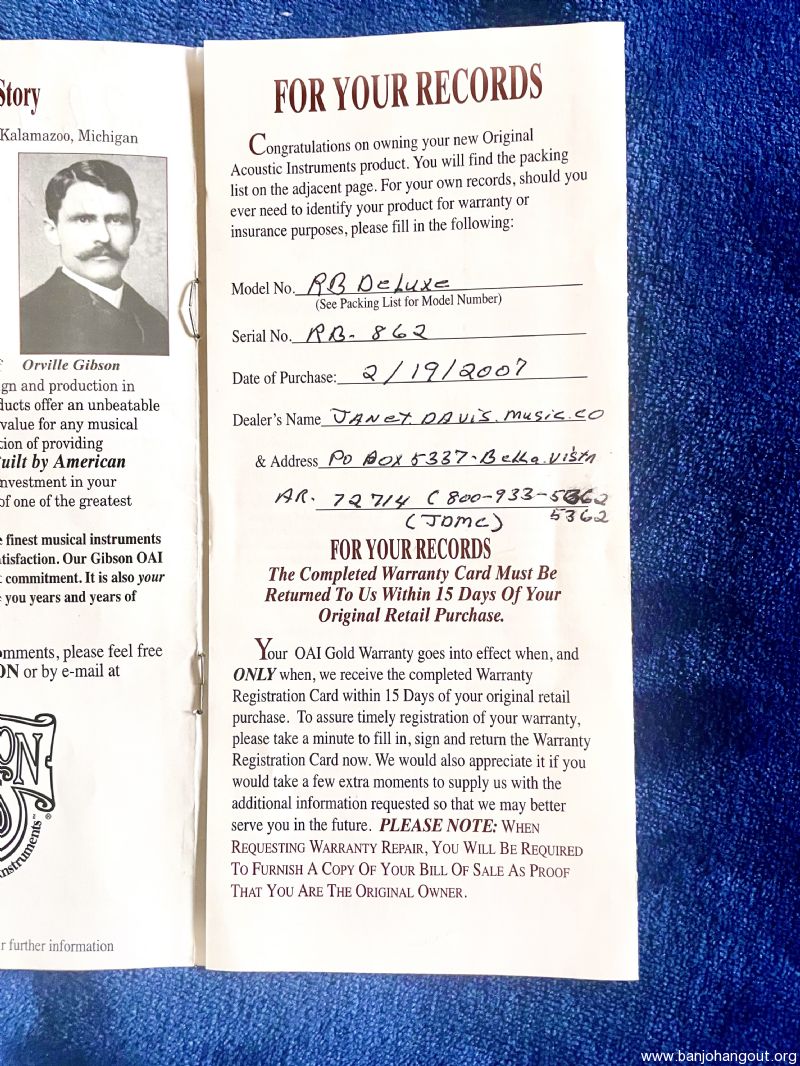 Story
Kalamazoo, Michigan
Orville Gibson
gn and production in
ducts offer an unbeatable
value for any musical
tion of providing
uilt by American
nvestment in your
of one of the greatest
e finest musical instruments
atisfaction. Our Gibson OAI
t commitment. It is also your
e you years and years of
omments, please feel free
ON or by e-mail at
ON
nstruments™
®
r further information
FOR YOUR RECORDS
Congratulations on owning your new Original
Acoustic Instruments product. You will find the packing
list on the adjacent page. For your own records, should you
ever need to identify your product for warranty or
insurance purposes, please fill in the following:
Model No. RB DeLuxe
(See Packing List for Model Number)
Serial No. RB- 862
Date of Purchase: 2/19/2007
Dealer's Name JANET. DAVIS. Music. CO
& Address PO BOX 5337- Bella. Vista
AR. 72714 (800-933-5362
(JDMC) 5362
FOR YOUR RECORDS
The Completed Warranty Card Must Be
Returned To Us Within 15 Days Of Your
Original Retail Purchase.
Your OAI Gold Warranty goes into effect when, and
ONLY when, we receive the completed Warranty
Registration Card within 15 Days of your original retail
purchase. To assure timely registration of your warranty,
please take a minute to fill in, sign and return the Warranty
Registration Card now. We would also appreciate it if you
would take a few extra moments to supply us with the
additional information requested so that we may better
serve you in the future. PLEASE NOTE: WHEN
REQUESTING WARRANTY REPAIR, YOU WILL BE REQUIRED
TO FURNISH A COPY OF YOUR BILL OF SALE AS PROOF
THAT YOU ARE THE ORIGINAL OWNER.
www.banjohangout.org